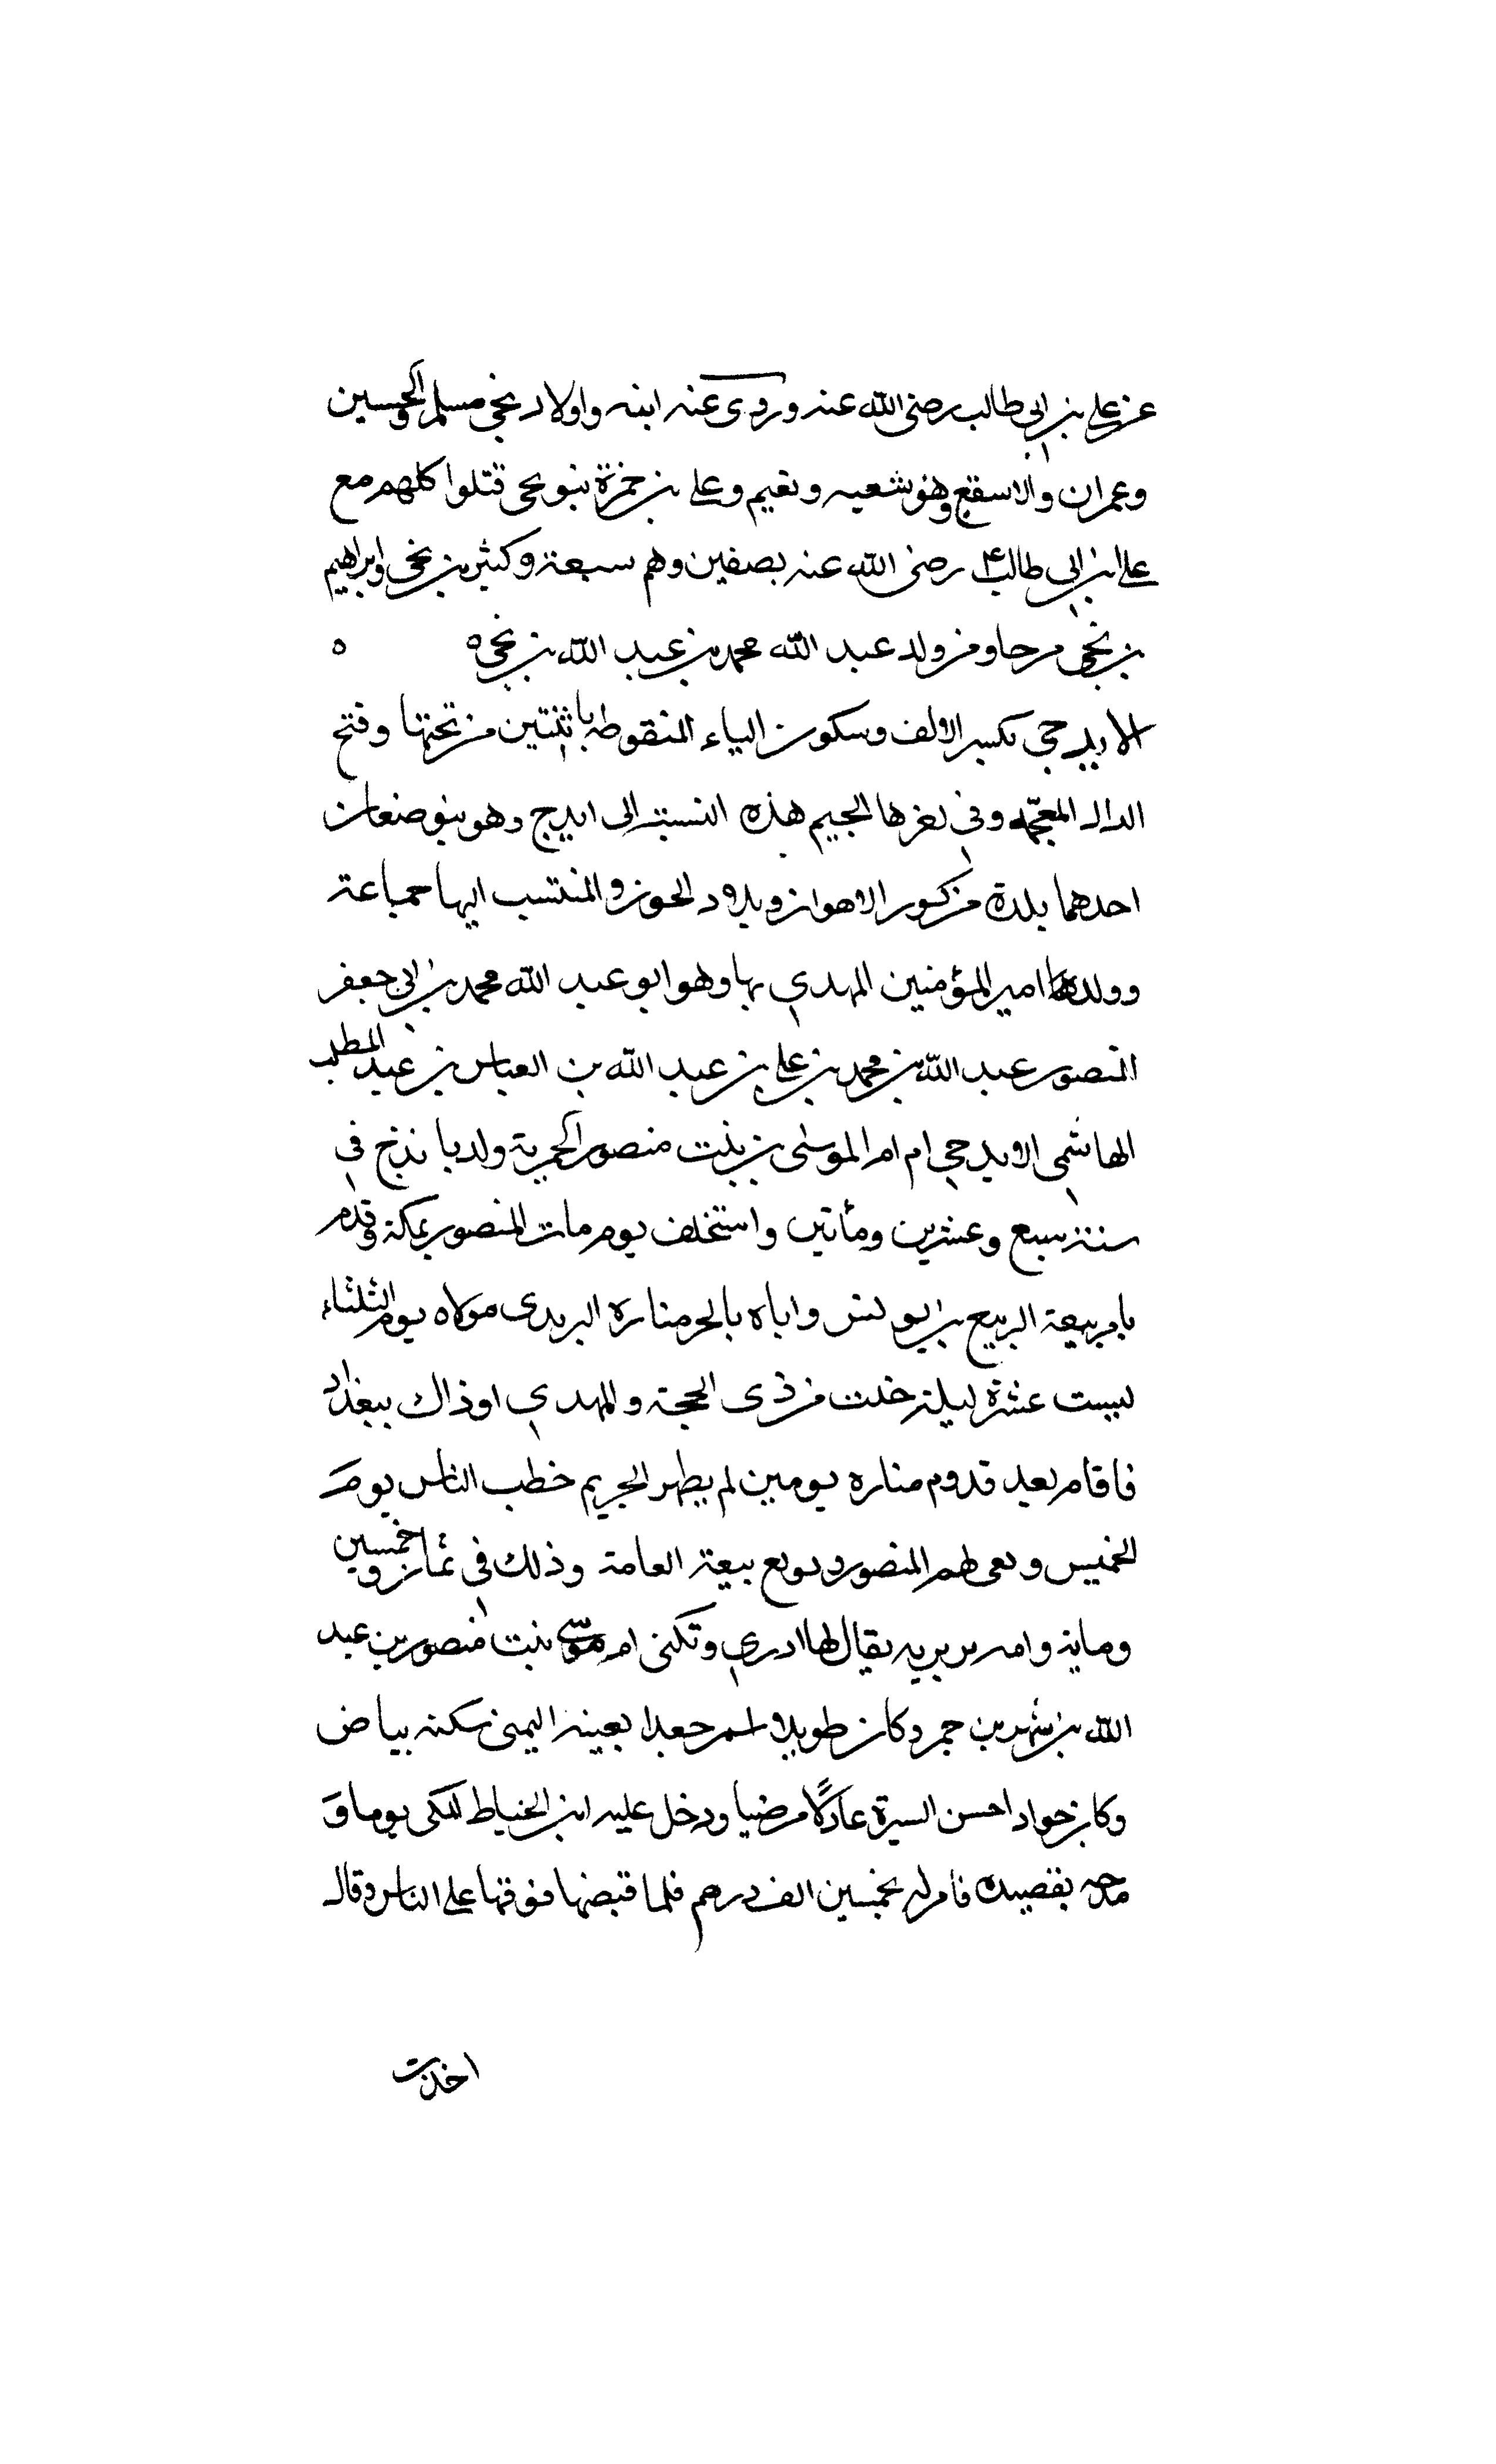 عن علي بن ابي طالب رضى الله عنه وروى عنه ابنه واولاد نجي مسلم والحسين
وعمران والاسقع وهو شعيه ونعيم وعلي بن حمزة بنو نجي قتلوا كلهم مع
علي ابن ابي طالب رضى الله عنه بصفين وهم سبعة وكثير بن نجي وابراهيم
بن نجي مرحا ومن ولد عبد الله محمد بن عبد الله بن نجي ه ه
الايدجي بكسر الالف وسكون الياء المنقوطه باثنتين من تحتها وفتح
الدال المعجمه وفي اخرها الجيم هذه النسبة الى ايدج وهو موضعان
احدهما بلدة من كور الاهواز وبلاد الخوز والمنتسب اليها جماعة
وولدها امير المؤمنين المهدي بها وهو ابو عبد الله محمد بن ابي جعفر
المنصور عبد الله بن محمد بن علي بن عبد الله بن العباس بن عبد المطلب
الهاشمى الايدجي ام الموسى بن بنت منصور الحميرية ولد بايذج في
سنة سبع وعشرين ومأتين واستخلف يوم مات المنصور بمكة وقدم
بامر بيعة الربيع بن يونس واباه بالحر مناره البريدى مولاه يوم الثلثاء
لست عشرة ليلة خلت من ذى الحجة والمهدي اوذاك ببغداد
فاقام بعد قدوم مناره يومين لم يظهر الخبر ثم خطب الناس يوم
الخميس ونعى لهم المنصور وبويع بيعة العامة وذلك في ثمان وخمسين
وماية وامه بربريه يقال لها ادري وتكنى ام موسى بنت منصور بن عبد
الله بن شهر بن حمر وكان طويلا اسمر جعدا بعينه اليمنى نكتة بياض
وكان جوادا حسن السيرة عادلا مرضيا ودخل عليه ابن الخياط المكى يوما و
مدحه بقصيده فامر له بخمسين الف درهم فلما قبضها فرقها على الناس وقال
اخذت